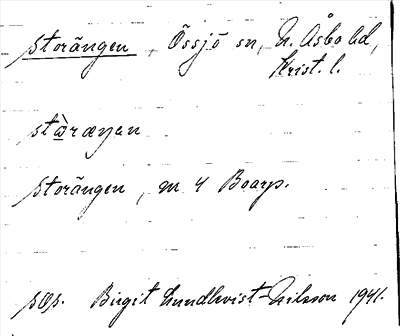 Storängen, Össjö sn, N. Åsbo hd,
Krist. l.
stòræŋan
Storängen, m 4 Boarp.
Birgit Lundkvist-Nilsson 1941.